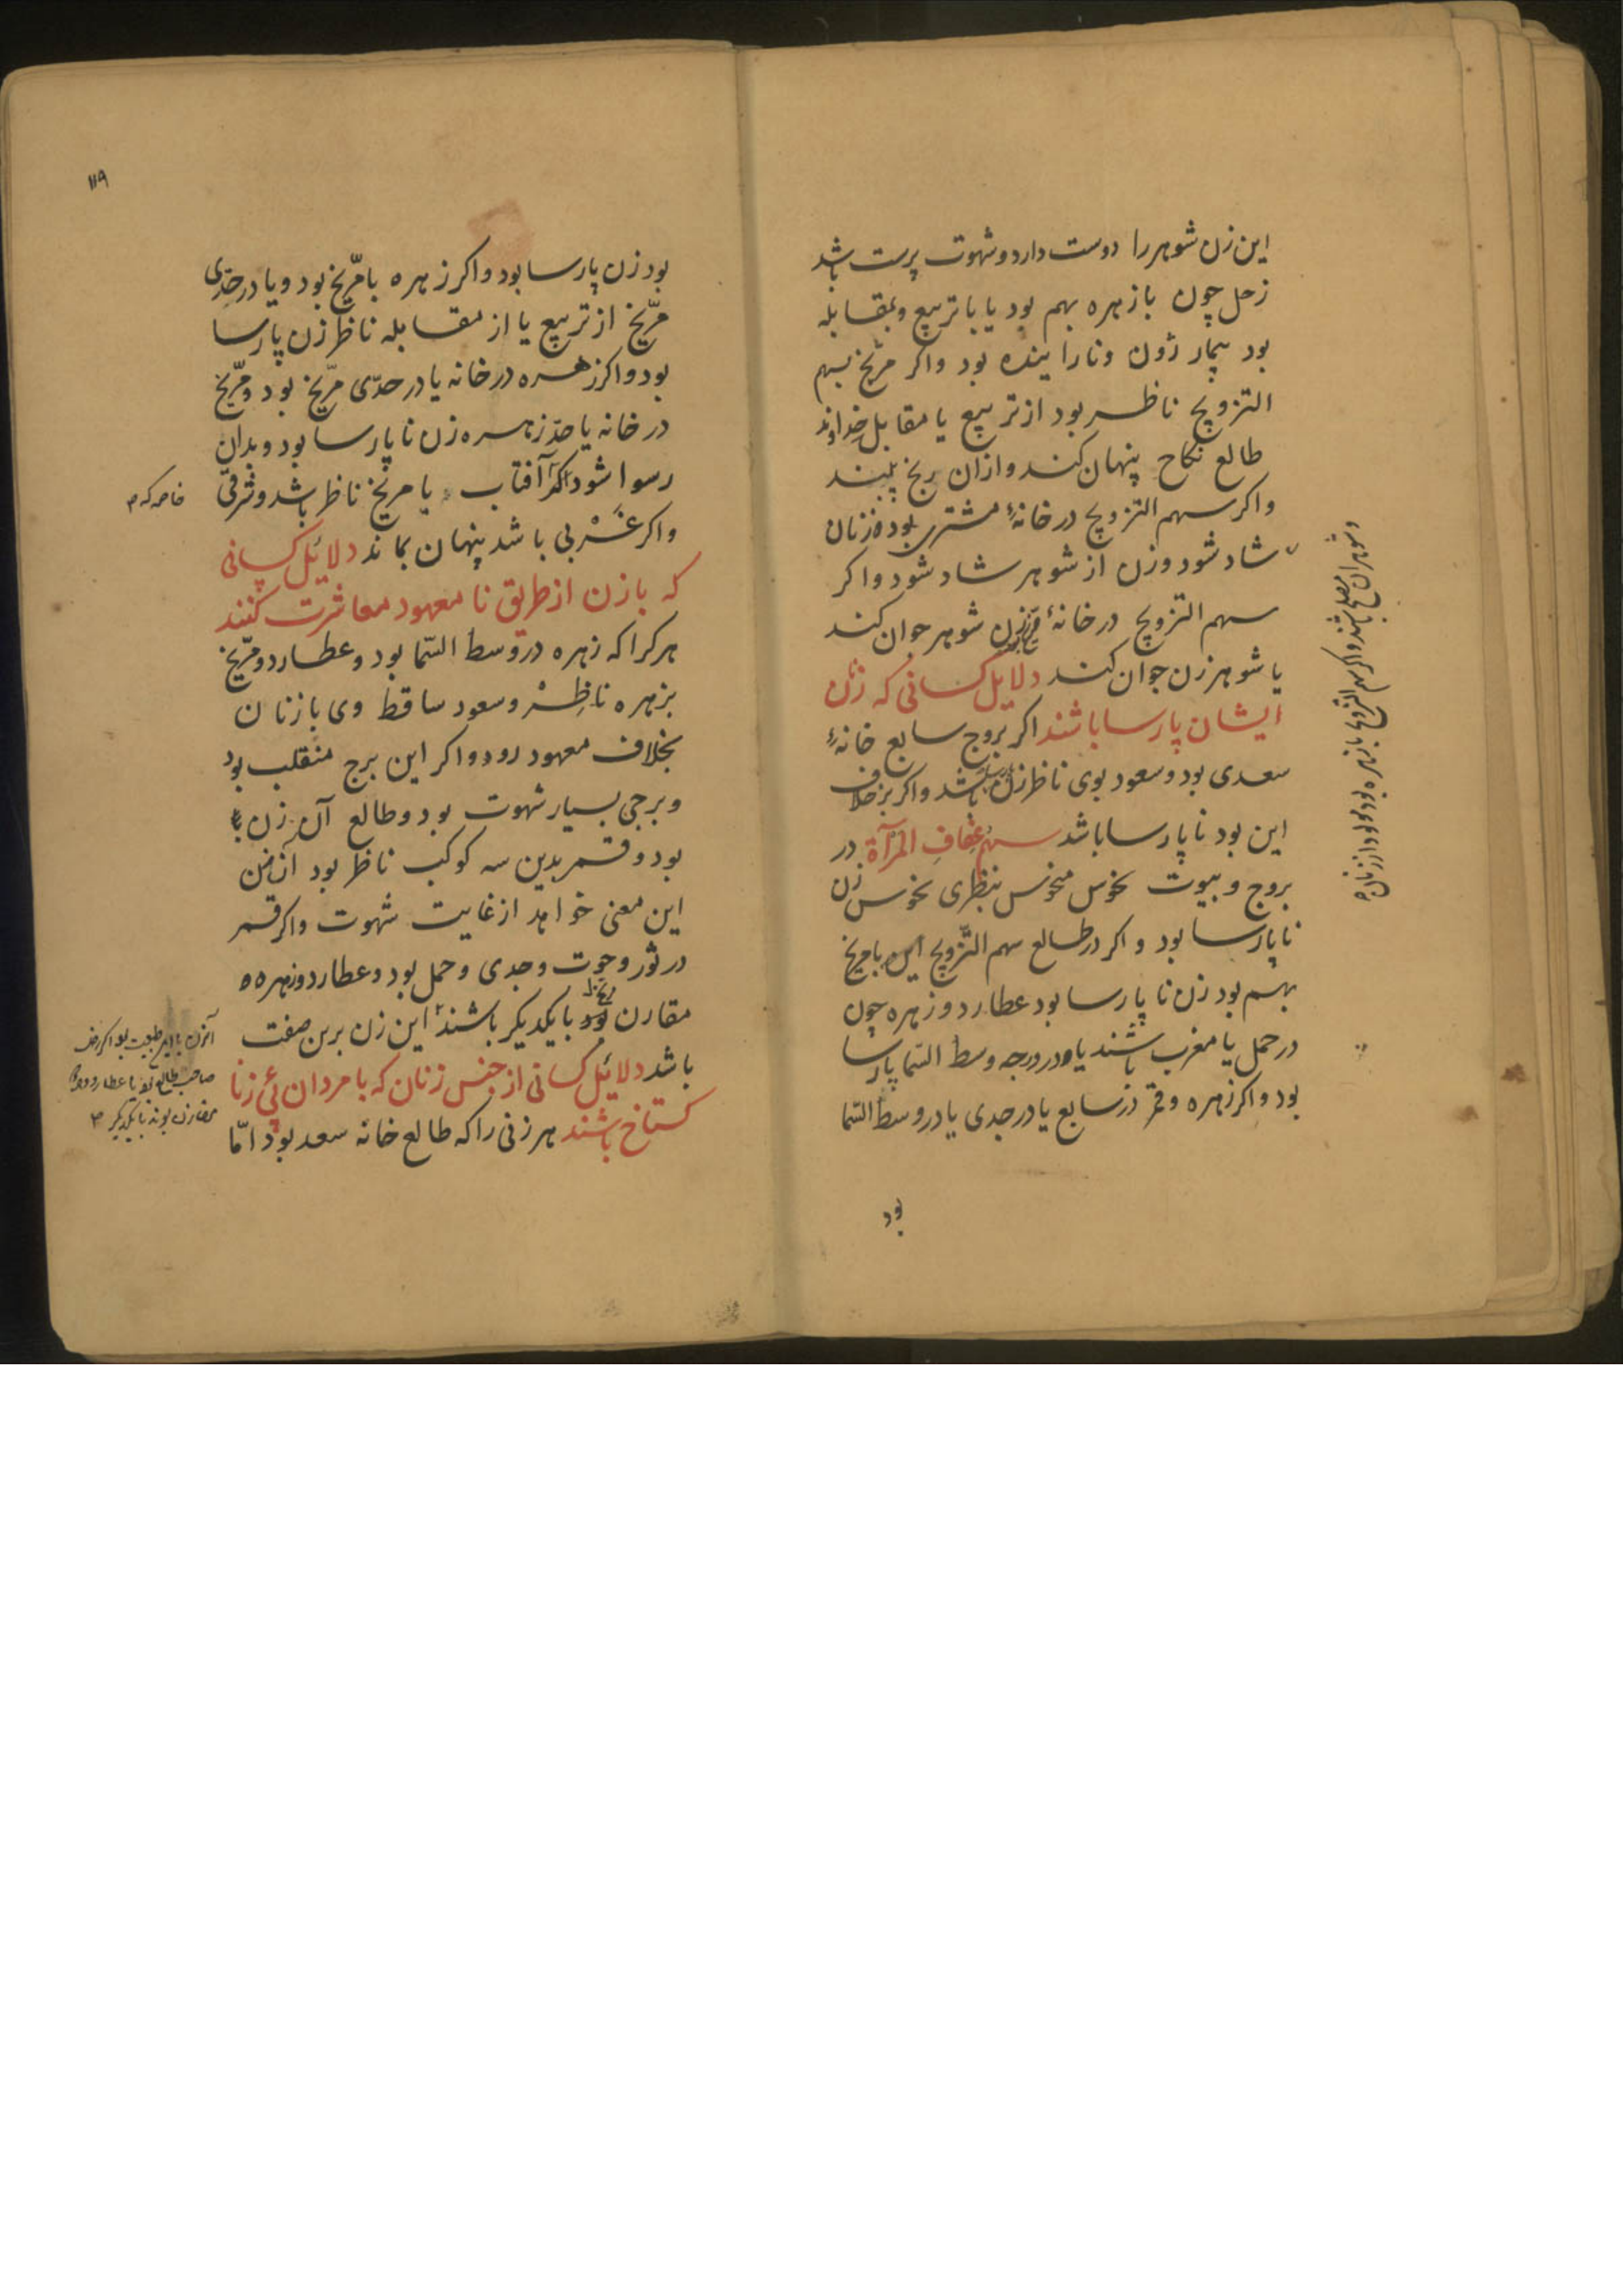 این زن شوهر را دوست دارد و شهوت پرست باشد
زحل چون با زهره بهم بود یا با تربیع و بمقابله
بود بیمار زون و نارا ینده بود واکر مریخ بسهم
التزویج ناظر بود از تربیع یا مقابل خداوند
طالع نکاح پنهان کند و ازان رنج بیند
واکر سهم التزویج در خانهٔ مشتری بود زنان
شاد شود و زن از شوهر شاد شود واکر
سهم التزویج در خانهٔ قمر زن شوهر جوان کند
یا شوهر زن جوان کند دلایل کسانی که زنان
ایشان پارسا باشند اکر بروج سابع خانهٔ
سعدی بود و سعود بوی ناظر زن پارسا باشد واکر بر خلاف
این بود نا پارسا باشد سهم عفاف المرآة در
بروج و بیوت نحوس منحوس بنظری نحوس زن
نا پارسا بود و اکر در طالع سهم التّزویج با مریخ
بهم بود زن نا پارسا بود عطارد و زهره چون
در حمل یا مغرب باشند یا در درجه وسط السّما پارسا
بود واکر زهره و قمر در سابع یا در جدی یا در وسط السّما
بود
و شوهران مصلح باشند و اکر سهم التزویج با زهره بود مولود از زنان
۱۱۹
بود زن پارسا بود واکر زهره با مرّیخ بود و یا در حدّی
مرّیخ از تربیع یا از مقابله ناظر زن پارسا
بود واکر زهره در خانه یا در حدّی مرّیخ بود و مرّیخ
در خانه یا حدّ زهره زن نا پارسا بود و بدان
رسوا شود اکر آفتاب یا مریخ ناظر باشد و شرقی
خاصه که
واکر غربی باشد پنهان بماند دلائل کسانی
که با زن از طریق نا معهود معاشرت کنند
هر کرا که زهره در وسط السّما بود و عطارد و مرّیخ
بزهره ناظر و سعود ساقط وی با زنان
بخلاف معهود رود واکر این برج منقلب بود
و برجی بسیار شهوت بود و طالع آن زن
بود و قمر بدین سه کوکب ناظر بود آن زن
این معنی خواهد از غایت شهوت واکر قمر
در ثور و حوت و جدی و حمل بود و عطارد و زهره
مقارن بود با یکدیکر باشند این زن برین صفت
باشد دلائل کسانی از جنس زنان که با مردان بی زنا
کستاخ باشند هر زنی را که طالع خانه سعد بود امّا
صاحب طالع بود یا عطارد
مقارن بوند با یکدیکر